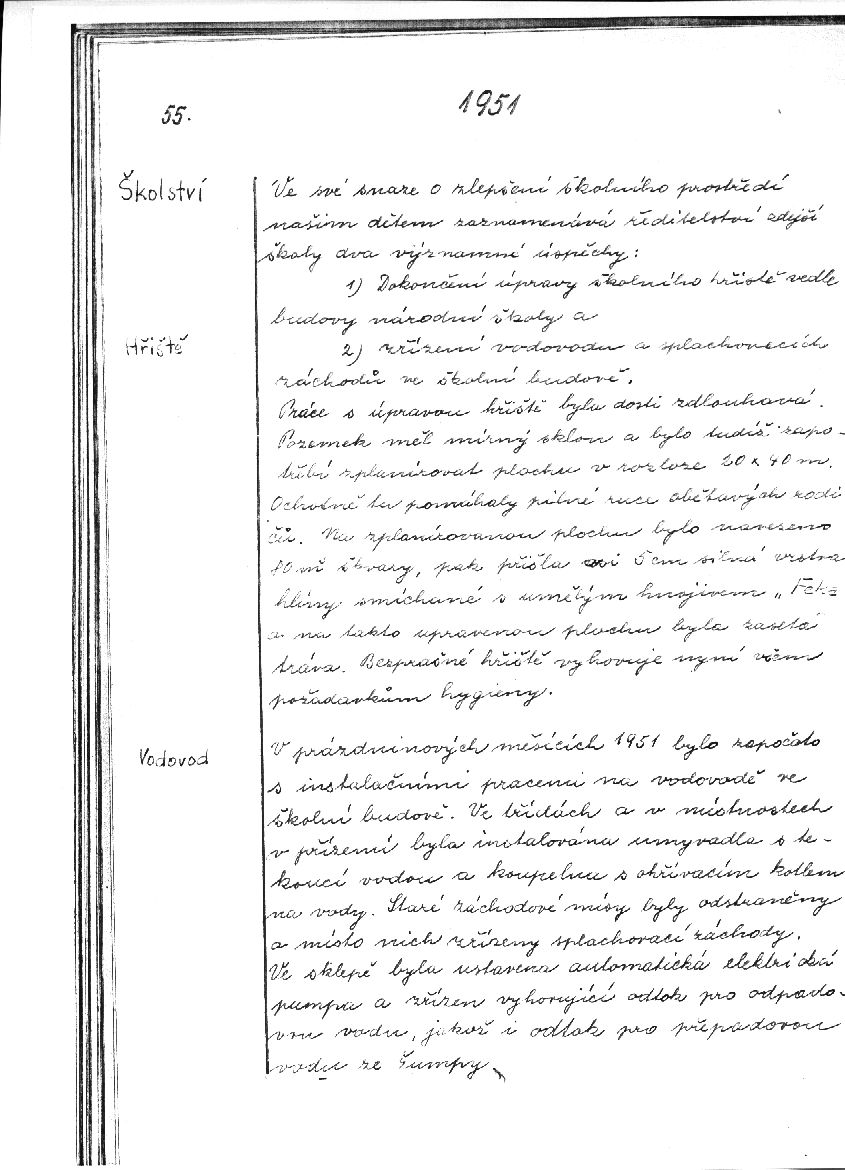 55.
1951
Školství
Ve své snaze o zlepšení školního prostředí
našim dětem zaznamenává ředitelství zdejší
školy dva významné úspěchy:
1) Dokončení úpravy školního hřiště vedle
budovy národní školy a
Hřiště
2) zřízení vodovodu a splachovacích
záchodů ve školní budově.
Práce s úpravou hřiště byla dosti zdlouhavá.
Pozemek měl mírný sklon a bylo tudíž zapo-
třebí zplanírovat plochu v rozloze 20 x 40 m.
Ochotně tu pomáhaly pilné ruce obětavých rodi
čů. Na zplanírovanou plochu bylo navezeno
40 m³ škvary, pak přišla asi 5 cm silná vrstva
hlíny smíchané s umělým hnojivem
a na takto upravenou plochu byla zasetá
tráva. Bezprašné hřiště vyhovuje nyní všem
požadavkům hygieny.
Vodovod
V prázdninových měsících 1951 bylo započato
s instalačními pracemi na vodovodě ve
školní budově. Ve třídách a v místnostech
v přízemí byla instalována umyvadla s te-
koucí vodou a koupelna s ohřívacím kotlem
na vody. Staré záchodové mísy byly odstraněny
a místo nich zřízeny splachovací záchody.
Ve sklepě byla ustavena automatická elektrická
pumpa a zřízen vyhovující odtok pro odpado-
vou vodu, jakož i odtok pro přepadovou
vodu ze žumpy.